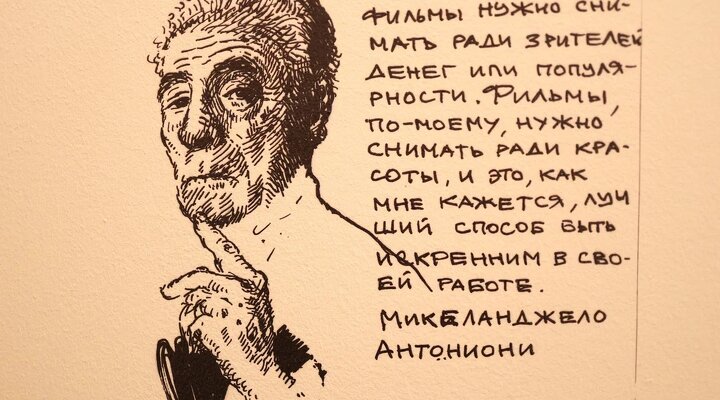 ФИЛЬМЫ НУЖНО СНИ-
МАТЬ РАДИ ЗРИТЕЛЕЙ
ДЕНЕГ ИЛИ ПОПУЛЯ-
РНОСТИ. ФИЛЬМЫ,
ПО-МОЕМУ, НУЖНО
СНИМАТЬ РАДИ КРА-
СОТЫ, И ЭТО, КАК
МНЕ КАЖЕТСЯ, ЛУЧ
ШИЙ СПОСОБ БЫТЬ
ИСКРЕННИМ В СВО-
ЕЙ РАБОТЕ.
МИКЕЛАНДЖЕЛО
АНТОНИОНИ